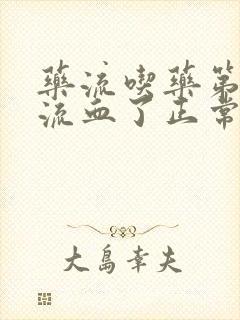 藥流喫藥第
流血了正常
大島幸夫